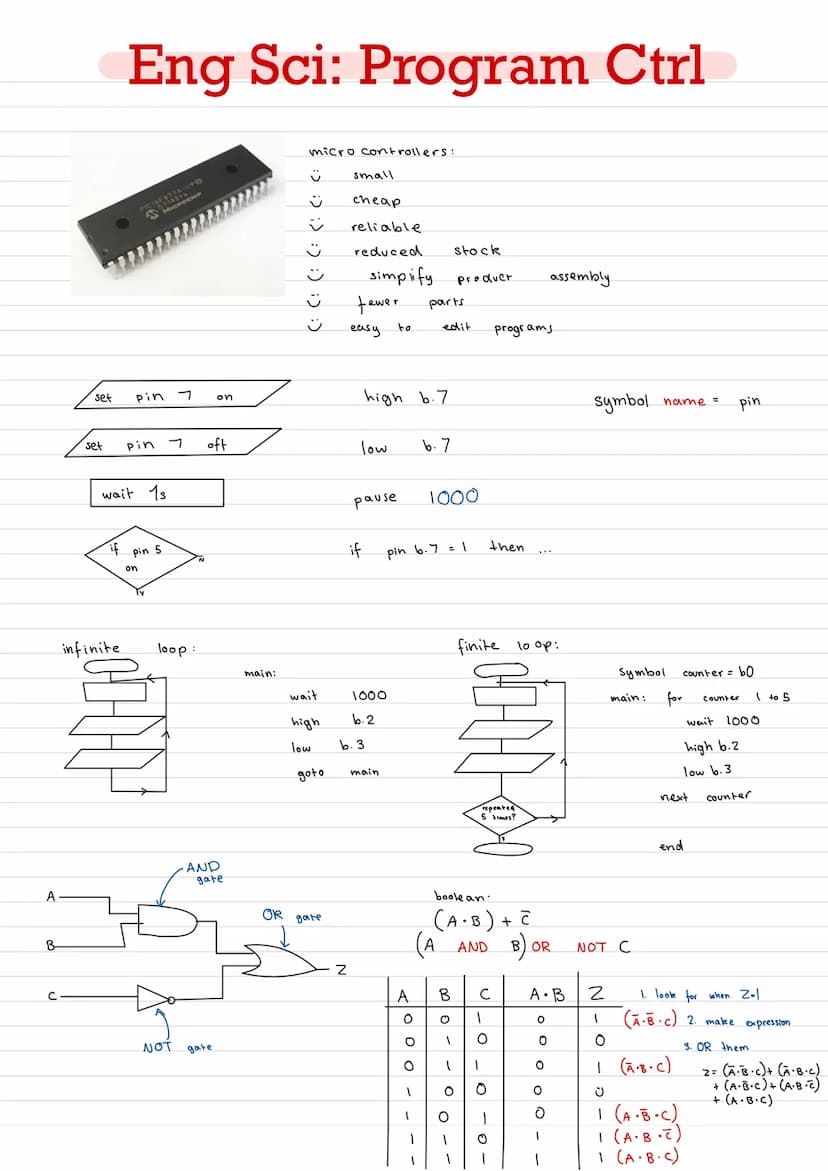 Eng Sci: Program Ctrl
micro controllers:
small
cheap
reliable
reduced stock
simplify product assembly
fewer parts
easy to edit programs
PIC16F877A-I/P
MICROCHIP
set pin 7 on
high b.7
symbol name = pin
set pin 7 off
low b.7
wait 1s
pause 1000
if pin 5 on
N
Y
if pin b.7 = 1 then ...
infinite loop:
main:
wait 1000
high b.2
low b.3
goto main
finite loop:
repeated 5 times?
symbol counter = b0
main: for counter 1 to 5
wait 1000
high b.2
low b.3
next counter
end
A
B
C
AND gate
OR gate
NOT gate
Z
boolean:
(A·B) + C̅
(A AND B) OR NOT C
A B C A·B Z
0 0 1 0 1 (A̅·B̅·C)
0 1 0 0 0
0 1 1 0 1 (A̅·B·C)
1 0 0 0 0
1 0 1 0 1 (A·B̅·C)
1 1 0 1 1 (A·B·C̅)
1 1 1 1 1 (A·B·C)
1. look for when Z=1
2. make expression
3. OR them
Z= (A̅·B̅·C)+(A̅·B·C)
+ (A·B̅·C)+(A·B·C̅)
+ (A·B·C)